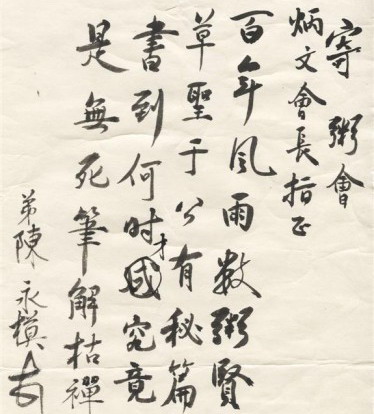 寄粥會
炳文會長指正
百年風雨數粥賢
草聖于公有秘篇
書到何时才究竟
是無死筆解枯禪
弟陳永模